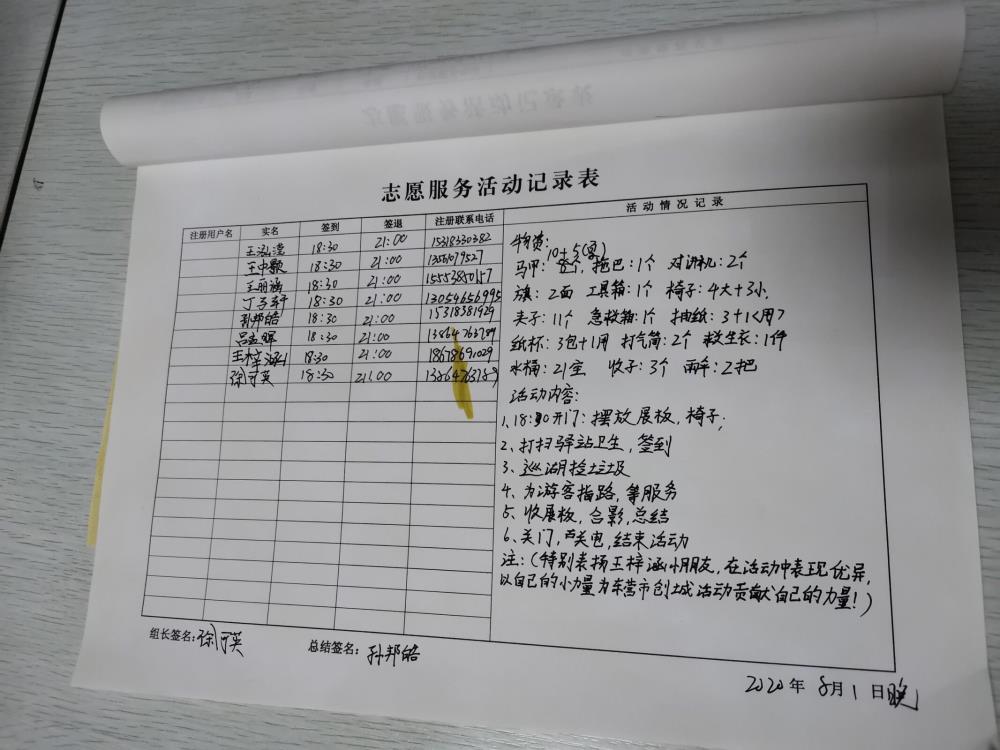 志愿服务活动记录表
注册用户名 实名 签到 签退 注册联系电话 活动情况记录
王泓滢 18:30 21:00 15318330382
王中歌 18:30 21:00
王丽涵 18:30 21:00 15553850157
18:30 21:00 13054656995
孙邦皓 18:30 21:00 15318381929
18:30 21:00
王梓涵 18:30 21:00 18678691029
徐可英 18:30 21:00 13864763189
物资:
10+5(黑)
马甲: 拖巴:1个 对讲机:2个
旗:2面 工具箱:1个 椅子:4大+3小
夹子:11个 急救箱:1个 抽纸:3+1(用)
纸杯:3包+1用 打气筒:2个 救生衣:1件
水桶:2 收子:3个 雨伞:2把
活动内容:
1、18:30开门:摆放展板,椅子;
2、打扫驿站卫生,签到
3、巡湖捡垃圾
4、为游客指路,等服务
5、收展板,合影,总结
6、关门,关电,结束活动
注:(特别表扬王梓涵小朋友,在活动中表现优异,
以自己的小力量为东营市创城活动贡献自己的力量!)
组长签名:徐可英 总结签名:孙邦皓
2020年8月1日晚